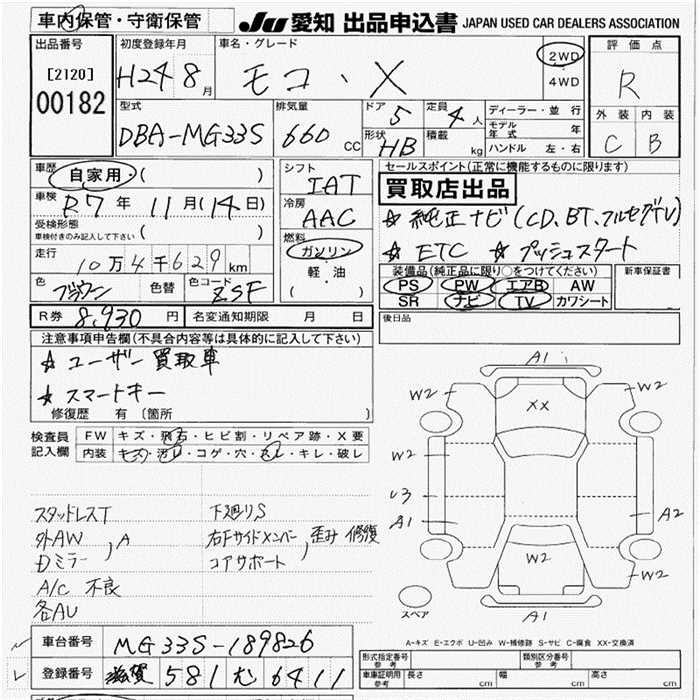 車内保管・守衛保管
JU 愛知 出品申込書 JAPAN USED CAR DEALERS ASSOCIATION
出品番号
[2120]
00182
初度登録年月
H24 8月
車名・グレード
モコ、X
2WD
4WD
評価点
R
外装 内装
C B
型式
DBA-MG33S
排気量
660 cc
ドア 5
定員 4人
形状 HB
積載 kg
ディーラー・並行
モデル年式 年
ハンドル 左・右
車歴 自家用・( )
車検 R7年 11月(14日)
受検形態
車検付きのみ記入して下さい ( )
走行 10万4千629km
色 ブラウン 色替 色コード ZSF
シフト
IAT
冷房
AAC
燃料
ガソリン
軽・油
( )
セールスポイント(正常に機能するものに限ります)
買取店出品
☆ 純正ナビ(CD、BT、フルセグTV)
☆ ETC ☆ プッシュスタート
装備品(純正品に限り○をつけてください)
新車保証書
PS PW エアB AW
SR ナビ TV カワシート
R券 8,930円 名変通知期限 月 日
後日品
注意事項申告欄(不具合内容等は具体的に記入して下さい)
☆ ユーザー買取車
☆ スマートキー
修復歴 有 〔箇所 〕
検査員記入欄
FW キズ・飛石・ヒビ割・リペア跡・X要
内装 キズ・汚レ・コゲ・穴・スレ・キレ・破レ
スタッドレスT
外AW
Dミラー 、A
A/C 不良
各AU
下廻りS
右Fサイドメンバー
コアサポート 、歪み 修復
A1
W2 W2
XX
W2
U3
A1 A2
W2
W2 W2
A1
スペア
A-キズ E-エクボ U-凹み W-補修跡 S-サビ C-腐食 XX-交換済
車台番号 MG33S-189826
登録番号 滋賀 581 む 6411
型式指定番号 参考
類別区分番号 参考
車庫証明用 参考 長さ cm 幅 cm 高さ cm